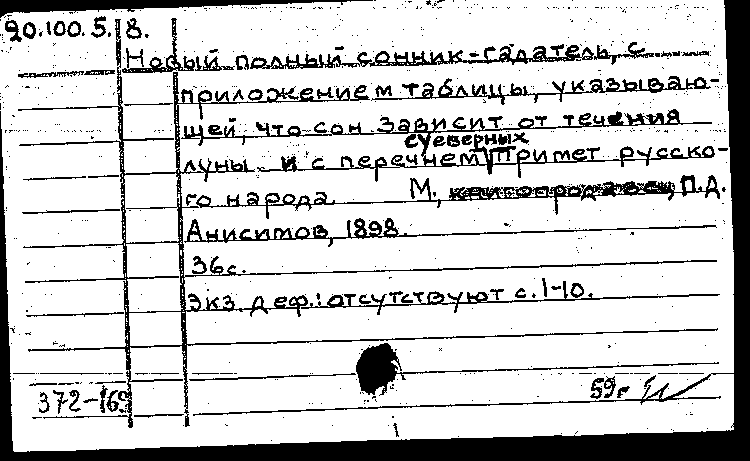 20.100.5.18.
Новый полный сонник-гадатель, с
приложением таблицы, указываю-
щей, что сон зависит от течения
суеверных
луны и с перечнем примет русско-
го народа М., П.Д.
Анисимов, 1898.
36с.
Экз. деф.: отсутствуют с. 1-10.
372-169
59г